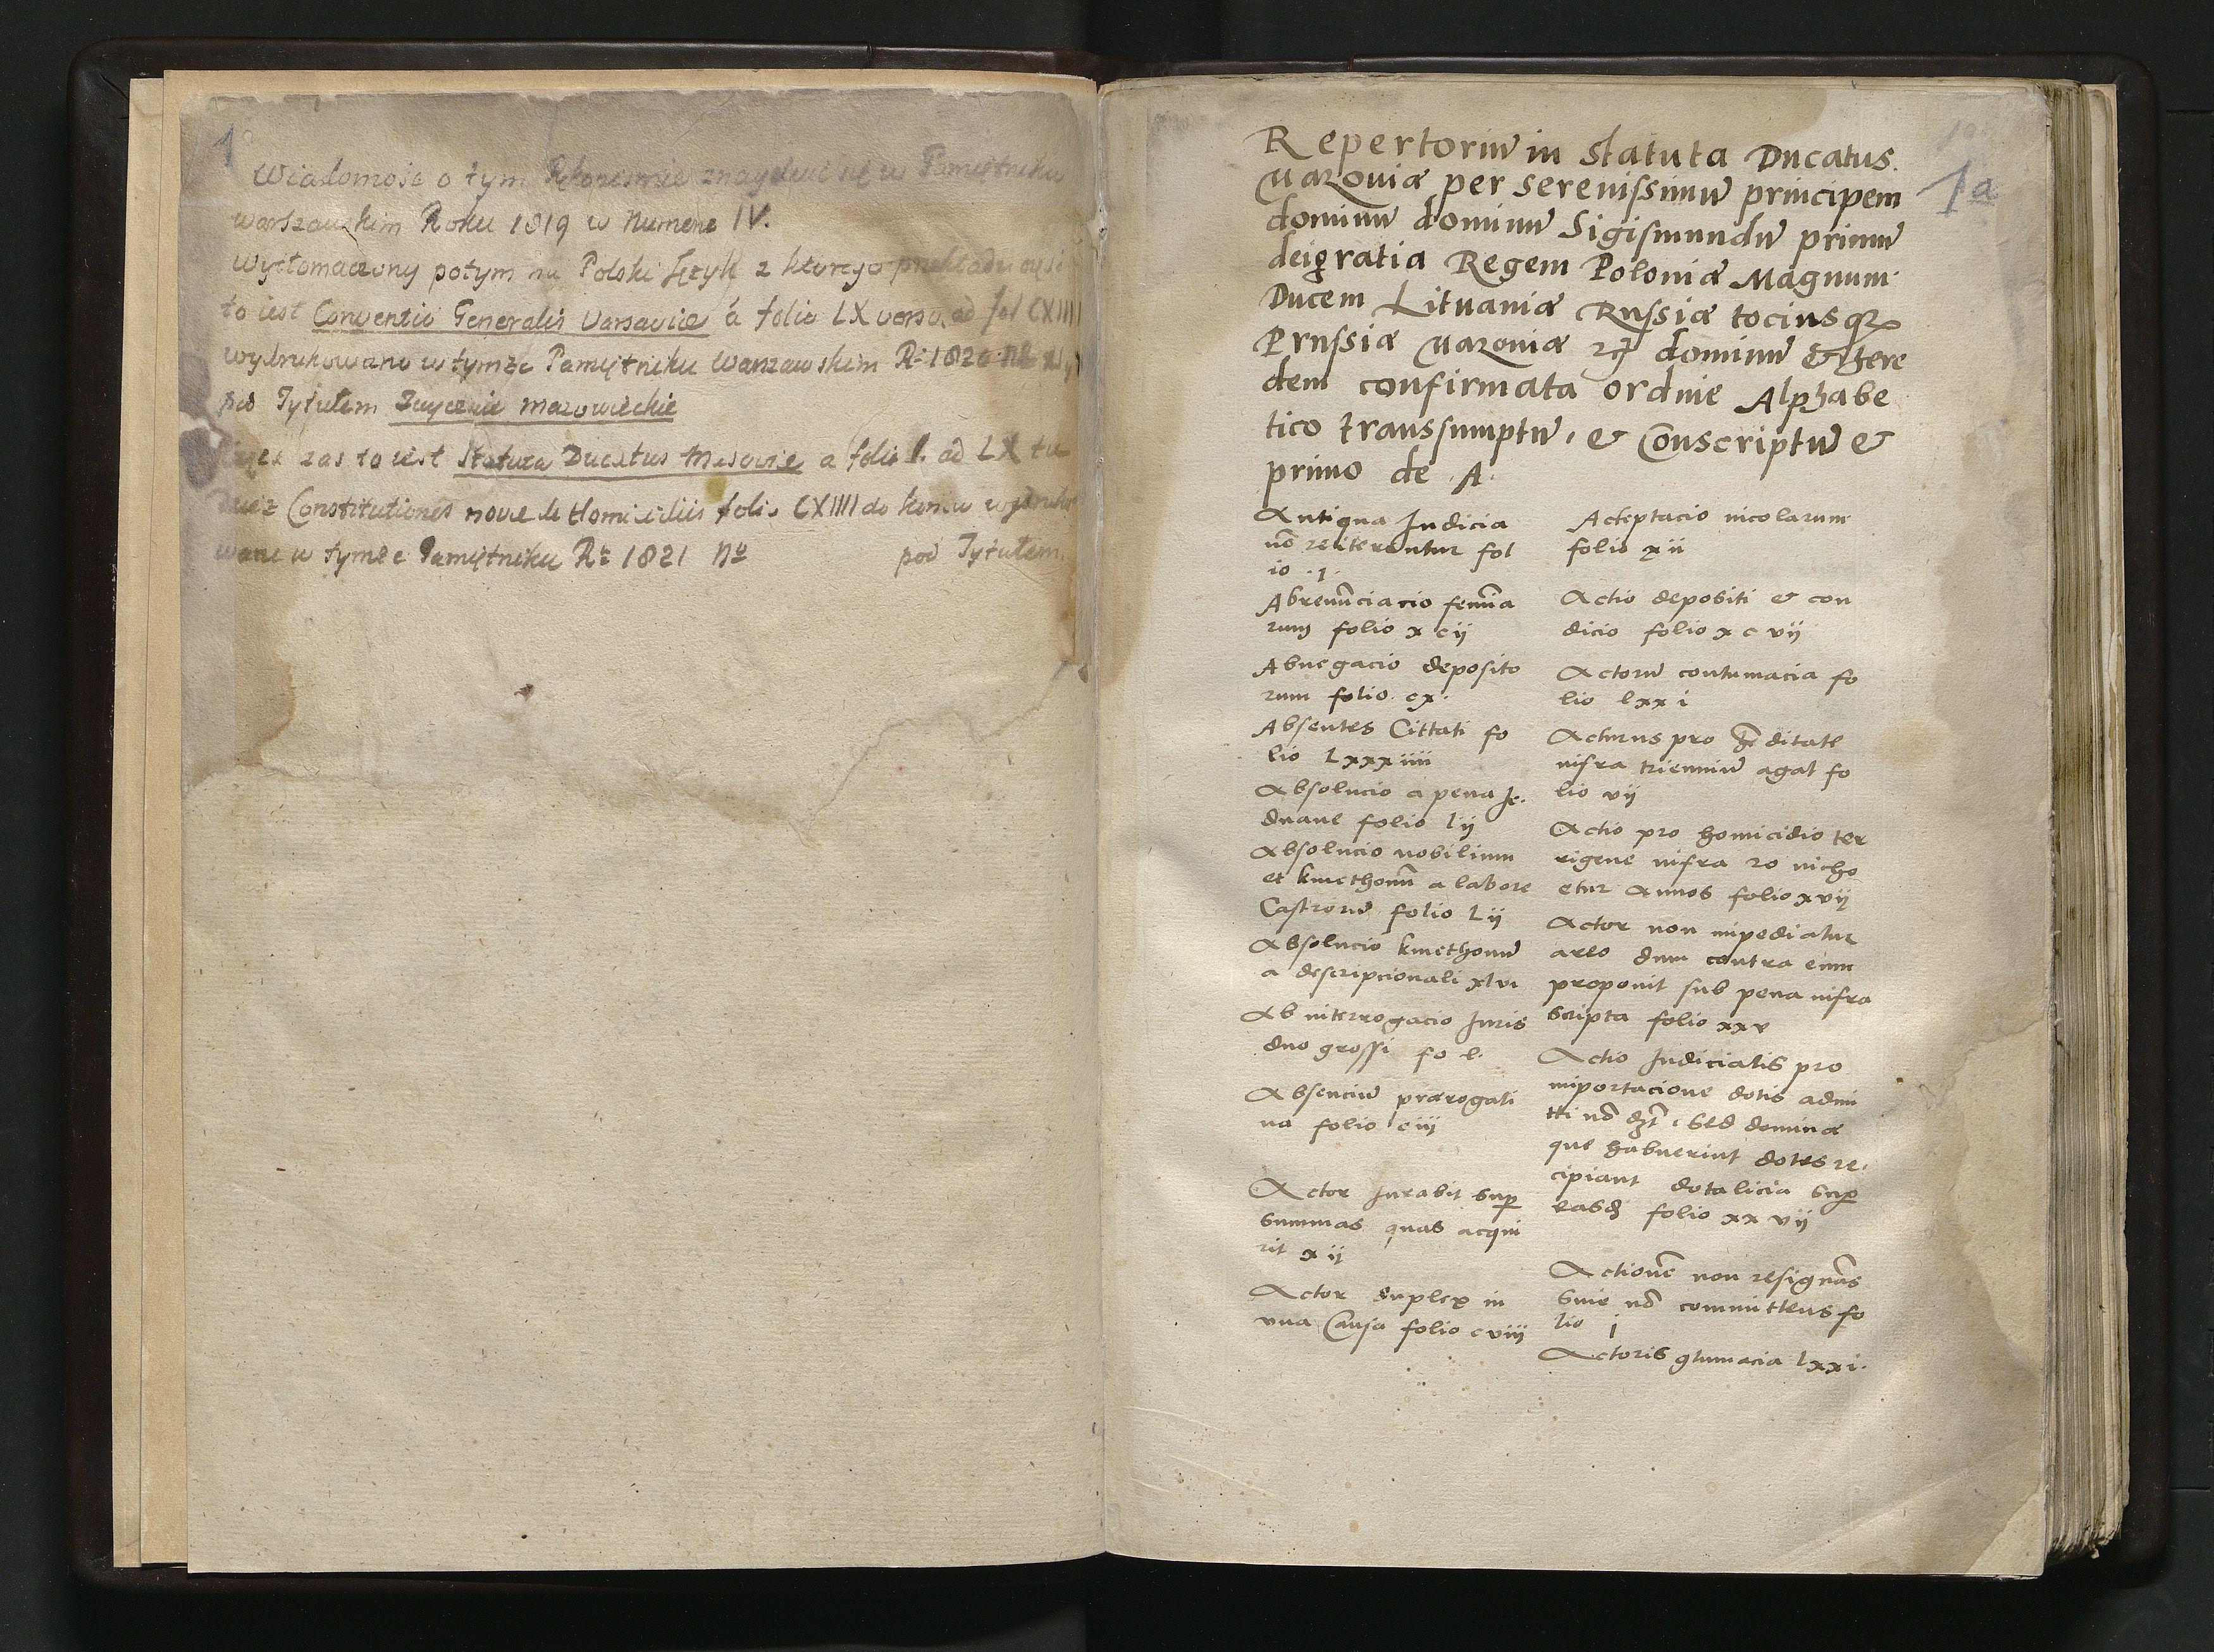 1
Wiadomość o tym Rękopismie znayduie się w Pamiętniku
warszawskim Roku 1819 w Numerze IV.
wytłomaczony potym na Polski Język z ktorego przekładu
to iest Conventio Generalis Varsavie á folio LX verso ad fol CXIIII
wydrukowano w tymże Pamiętniku Warszawskim Rº 1820
pod Tytułem Zwyczaie mazowieckie
zas to iest Statuta Ducatus Masovie a folio I. ad LX tu
Constitutiones nove de Homicidiis folio CXIIII do konca wydruko
wane w tymże Pamiętniku Rº 1821 Nº pod Tytułem
1a
Repertoriū in statuta Ducatus
Mazouiæ per serenissimū principem
dominū dominū Sigismundū primū
dei gratia Regem Poloniæ Magnum
Ducem Lituaniæ Russiæ tociusqꝫ
Prussiæ Mazouiæ dominū & here
dem confirmata ordine Alphabe
tico transsumptū, & Conscriptū &
primo de A
Antiqua Iudicia
nō reiterentur fol
io .1.
Abrenūciacio femīa
rum folio xcij
Abnegacio deposito
rum folio cx.
Absentes Cittati fo
lio Lxxxiiii
Absolucio a pena
folio lij
Absolucio nobilium
et kmethonū a labore
Castrorū folio Lij
Absolucio kmethonū
a descripcionali xlvi
Ab interrogacio Iuris
duo grossi fo l.
Absenciū prærogati
ua folio ciij
Actor Iurabit sup
summas quas acqui
rit xij
Actor duplex in
vna Causa folio cviij
Acceptacio incolarum
folio xii
Actio depositi & con
dicio folio xcvij
Actorū contumacia fo
lio lxxi
Acturus pro hēditate
infra trienniū agat fo
lio vij
Actio pro homicidio ter
rigene infra
etur Annos folio xvij
Actor non impediatur
arto dum contra eum
proponit sub pena infra
scripta folio xxv
Actio Iudicialis pro
importacione dotis admi
tti nō dꝫt, sed dominæ
que habuerint dotes re
cipiant dotalicia sup
easdꝫ folio xxvij
Actionē non resignās
suie nō committens fo
lio j
Actoris ꝯtumacia lxxi.